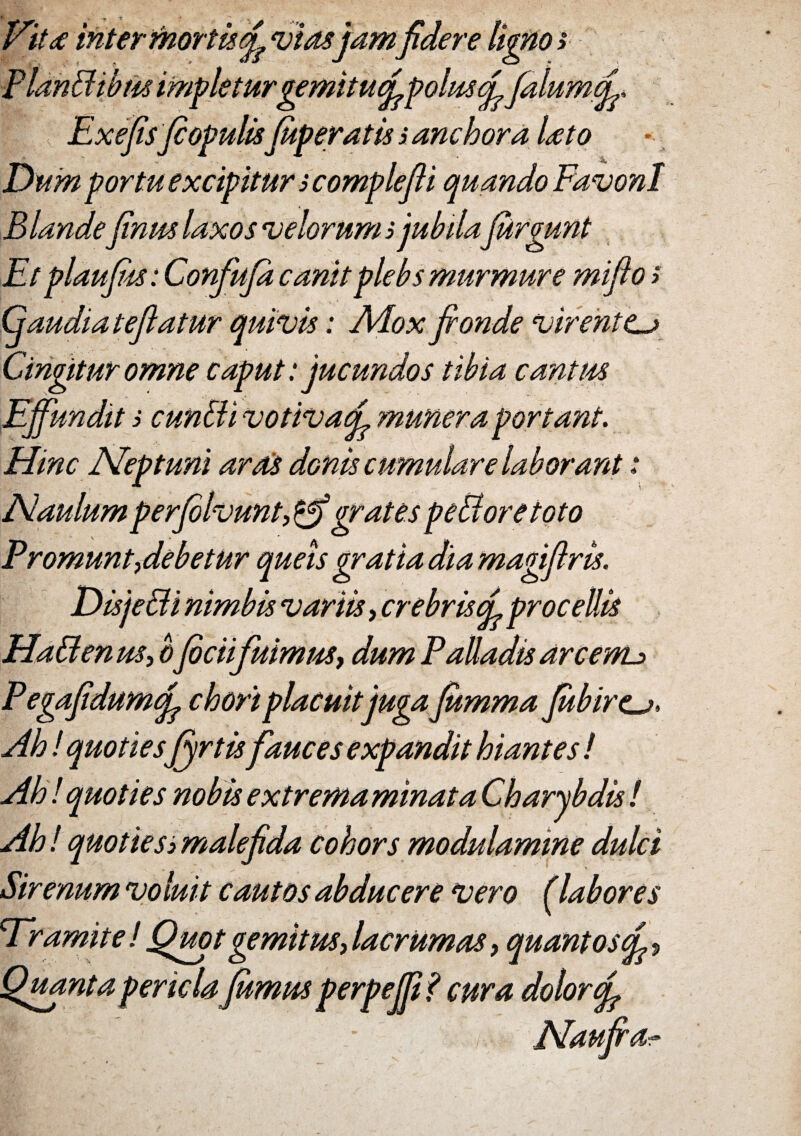 Vitæ inter mortisq́; vias jam fidere ligno;
Planctibus impletur gemituq́; polusq́; salumq́;.
Exesis scopulis superatis; anchora læto
Dum portu excipitur; complesti quando Favonî
Blande sinus laxos velorum; jubila surgunt
Et plausus: Confusa canit plebs murmure misto;
Gaudia testatur quivis: Mox fronde virente
Cingitur omne caput: jucundos tibia cantus
Effundit; cuncti votivaq́; munera portant.
Hinc Neptuni aras donis cumulare laborant:
Naulum persolvunt, & grates pectore toto
Promunt, debetur queis gratia dia magistris.
Disjecti nimbis variis, crebrisq́; procellis
Hactenus, ô socii fuimus, dum Palladis arcem
Pegasidumq́; chori placuit juga summa subire.
Ah! quoties syrtis fauces expandit hiantes!
Ah! quoties nobis extrema minata Charybdis!
Ah! quoties; malefida cohors modulamine dulci
Sirenum voluit cautos abducere vero (labores
Tramite! Quot gemitus, lacrumas, quantosq́;,
Quanta pericla sumus perpessi? cura dolorq́;
Naufra-